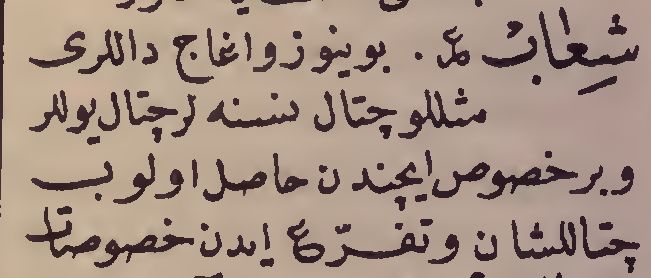 شِعابْ مع . بوينوز و اغاج داللرى
مثللو چتال نسنه لر چتال يوللر
و بر خصوص ايچندن حاصل اولوب
چتاللشان و تفرّع ايدن خصوصات